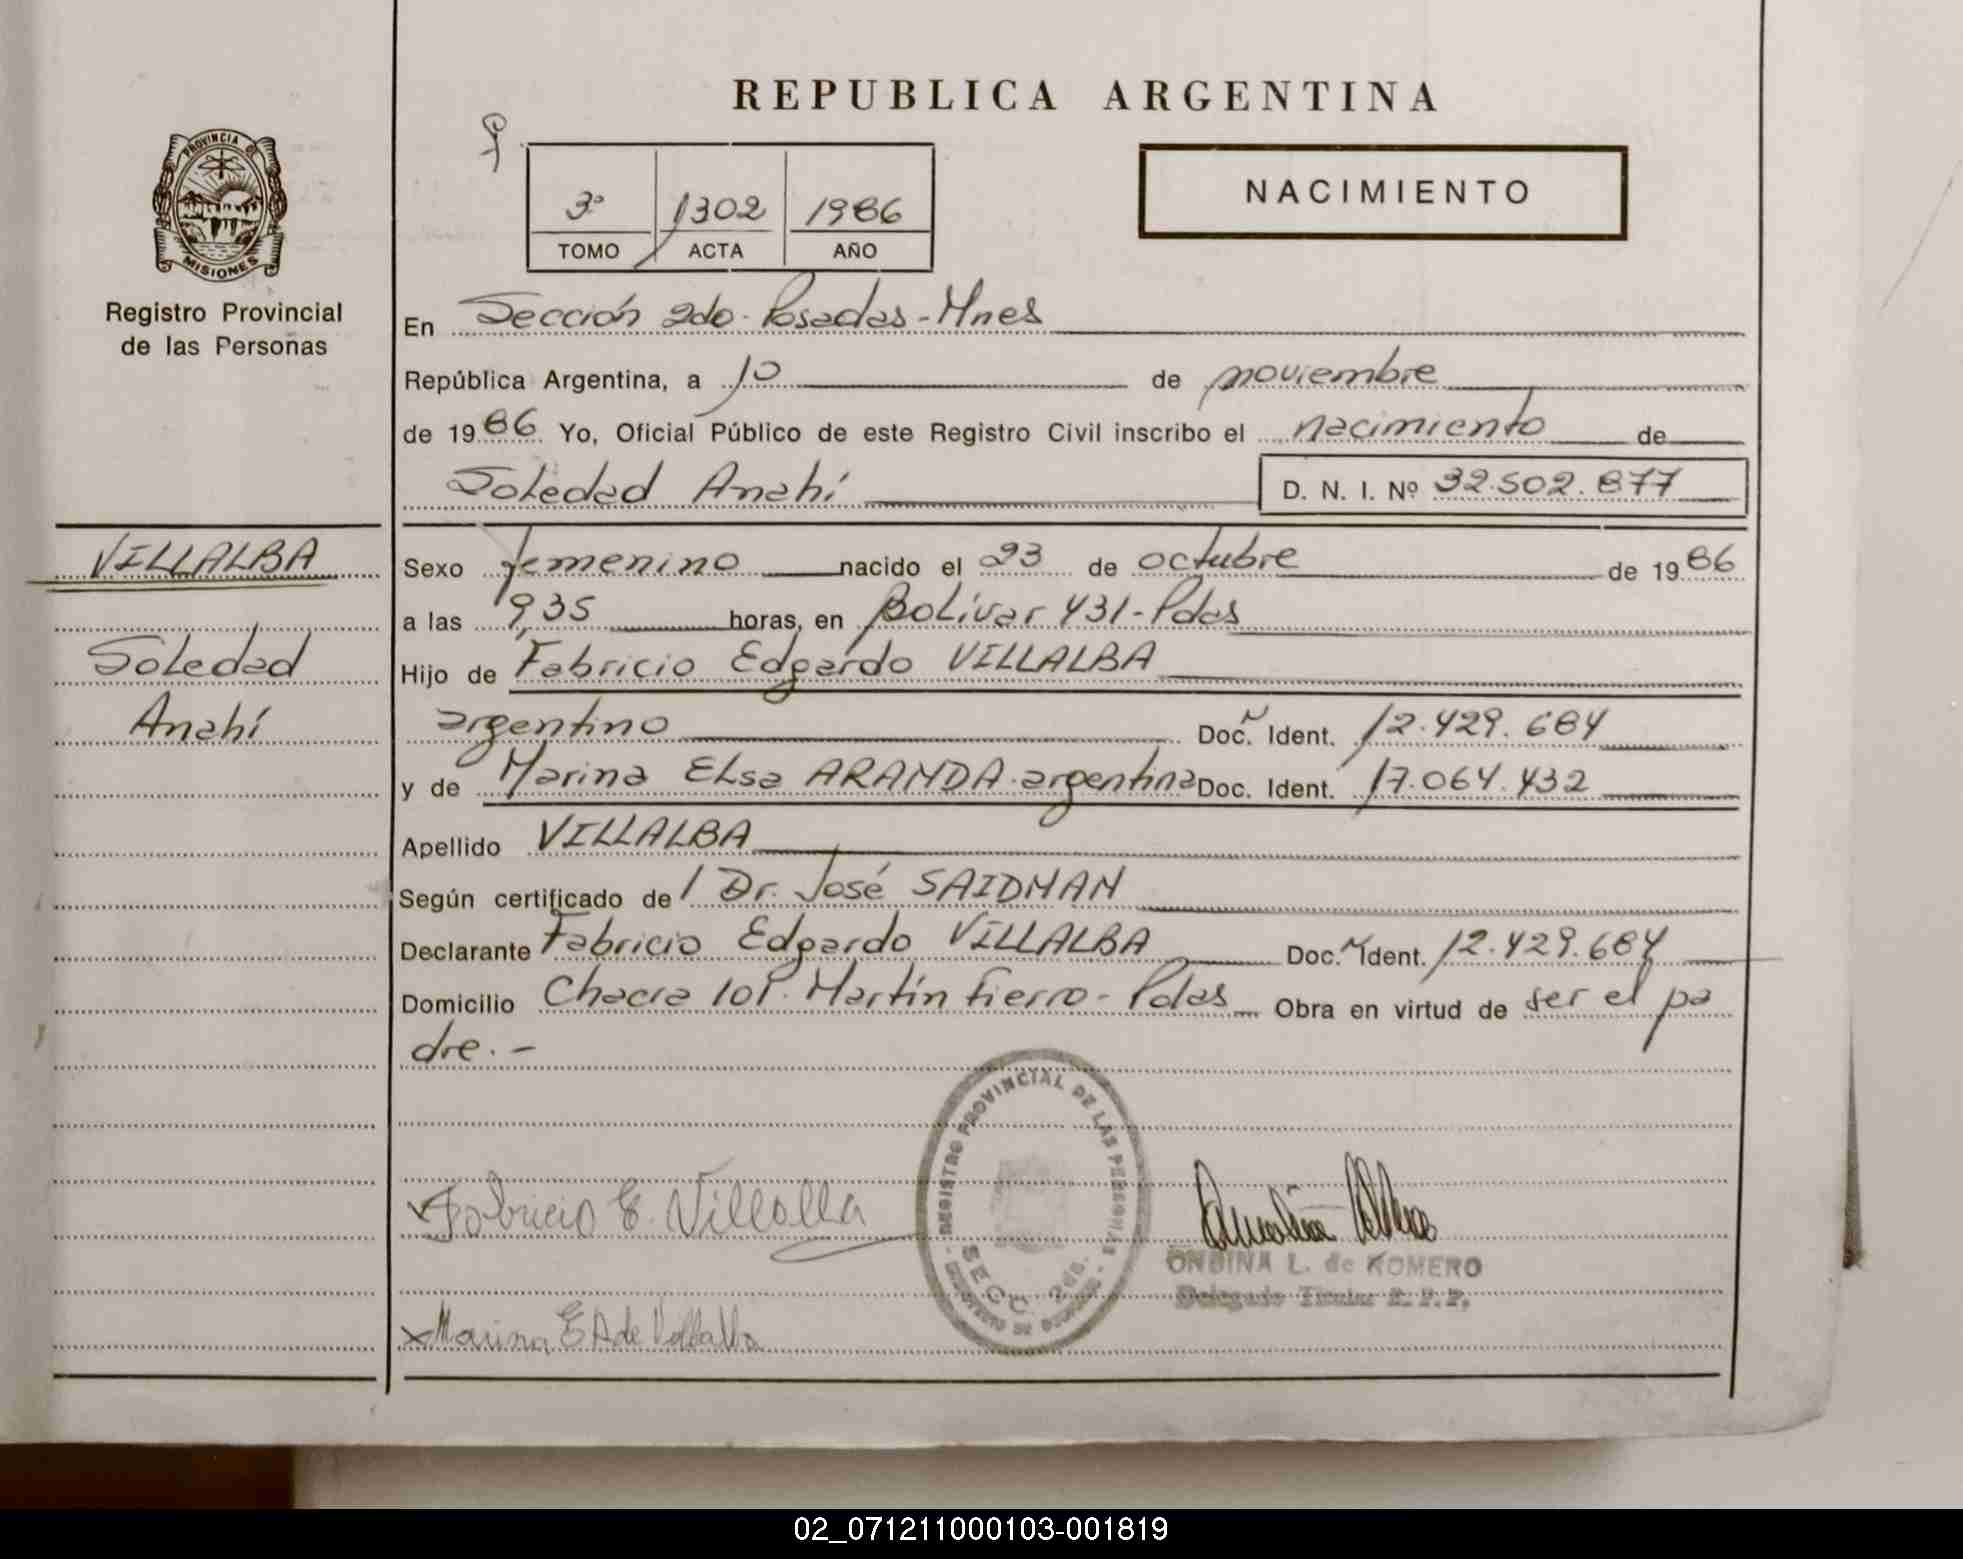 REPUBLICA ARGENTINA
PROVINCIA DE
MISIONES
Registro Provincial
de las Personas
3º 1302 1986
TOMO ACTA AÑO
NACIMIENTO
En Sección 2da. Posadas - Mnes
República Argentina, a 10 de noviembre
de 1986 Yo, Oficial Público de este Registro Civil inscribo el nacimiento de
Soledad Anahí D. N. I. Nº 32.502.877
VILLALBA
Soledad
Anahí
Sexo femenino nacido el 23 de octubre de 1986
a las 9,35 horas, en Bolívar 431 - Pdas
Hijo de Fabricio Edgardo VILLALBA
argentino Doc. Ident. 12.429.684
y de Marina Elsa ARANDA argentina Doc. Ident. 17.064.432
Apellido VILLALBA
Según certificado de l Dr. José SAIDMAN
Declarante Fabricio Edgardo VILLALBA Doc. Ident. 12.429.684
Domicilio Chacra 101. Martín Fierro - Pdas Obra en virtud de ser el pa
dre. -
REGISTRO PROVINCIAL DE LAS PERSONAS
SECC. 2da.
Fabricio E. Villalba
ONDINA L. de ROMERO
Delegado Titular R. P. P.
Marina E A de Villalba
02_071211000103-001819